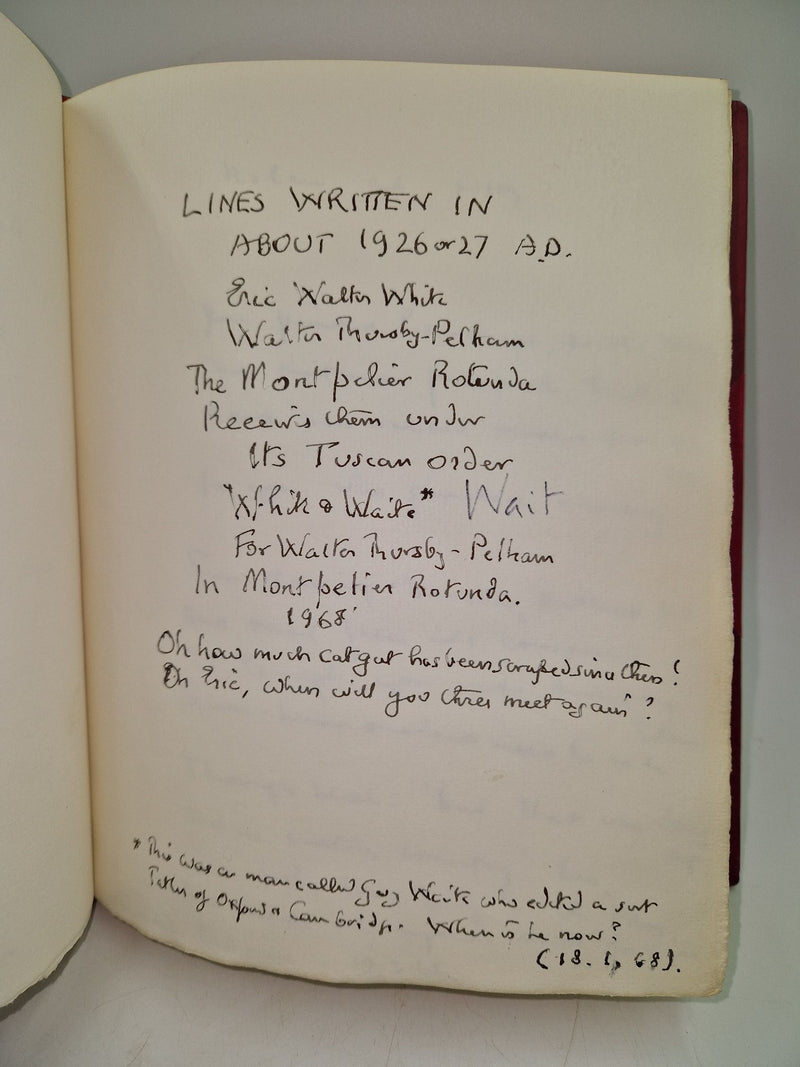 LINES WRITTEN IN
ABOUT 1926 or 27 A.D.
Eric Walter White
Walter Thursby-Pelham
The Montpelier Rotunda
Receives them under
Its Tuscan order
"White & Waite"* Wait
For Walter Thursby-Pelham
In Montpelier Rotunda.
1968
Oh how much catgut has been scraped since then!
Oh Eric, when will you three meet again?
* This was a man called Guy Waite who edited a sort
Tatler of Oxford & Cambridge. Where is he now?
(18. 1, 68).